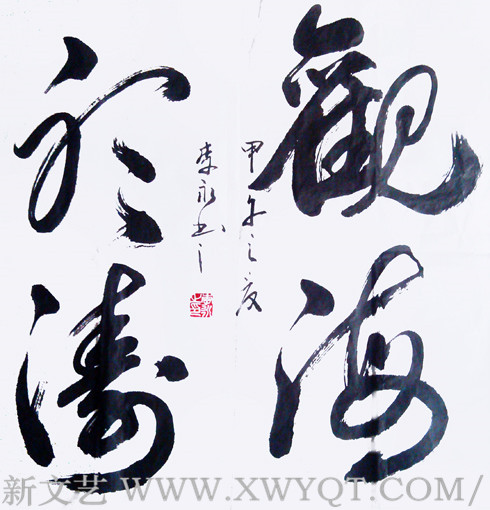 觀海
聽濤
甲午之夏
李永书
新文艺 WWW.XWYQT.COM/